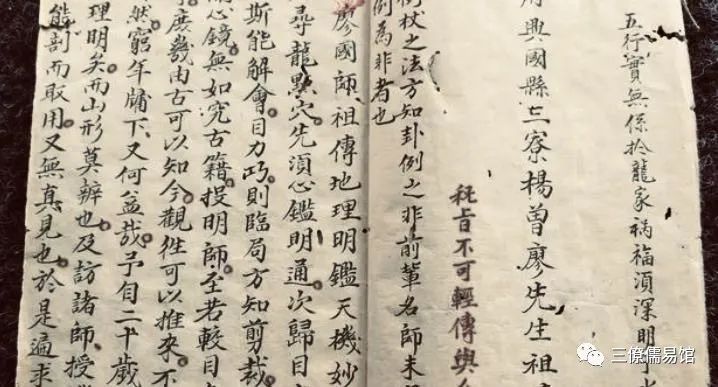 五行實無係於龍家禍福須深明
興國縣三寮楊曾廖先生祖
秏旨不可輕傳與
杖之法方知卦例之非前輩名師未
例為非者也
廖國師祖傳地理明鑑天機妙
尋龍點穴先須心鑑明通次歸目
斯能解會目巧則臨局方知剪裁
心鏡無如究古籍授明師至若較目
度幾由古可以知今觀徃可以推來不
然窮年牖下又何益哉予自二十歲
理明矣而山形莫辨也及訪諸師授
能剖而取用又無真見也於是遍求
三僚儒易馆